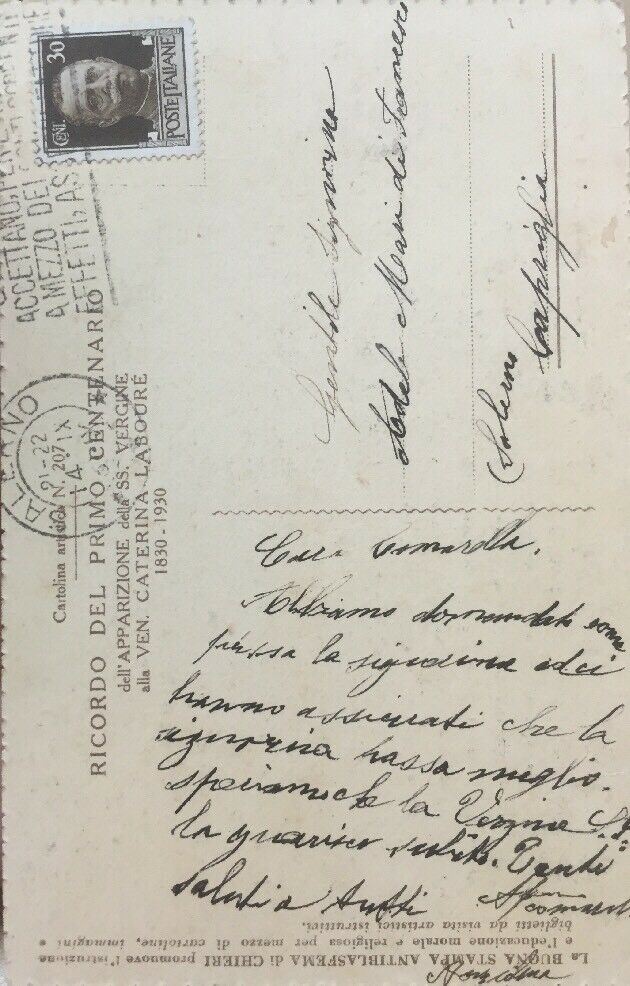 30
CENT.
POSTE ITALIANE
ACCETTANO,
A MEZZO DEL
EFFETTI, AS
21-22
14 IX
Cartolina artistica N. 207
RICORDO DEL PRIMO CENTENARIO
dell'APPARIZIONE della SS. VERGINE
alla VEN. CATERINA LABOURÉ
1830-1930
Gentile Signorina
Adele Mari di Francesco
(Salerno Capriglia
Cara
Abbiamo domandato come
passa la signorina ed ci
hanno assicurati che la
signorina passa meglio.
speriamo che la Vergine SS
la guarisce subito. Tanti
saluti a tutti
La BUONA STAMPA ANTIBLASFEMA di CHIERI promuove l'istruzione
e l'educazione morale e religiosa per mezzo di cartoline, immagini e
biglietti da visita artistici istruttivi.